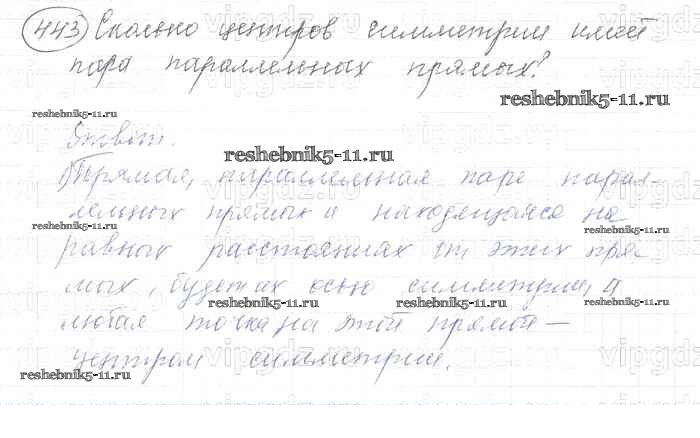 443 Сколько центров симметрии имеет
пара параллельных прямых?
reshebnik5-11.ru
reshebnik5-11.ru
Ответ.
reshebnik5-11.ru
Прямая, параллельная паре парал-
лельных прямых и находящаяся на
reshebnik5-11.ru
равных расстояниях от этих пря-
мых, будет их осью симметрии, а
reshebnik5-11.ru reshebnik5-11.ru
любая точка на этой прямой –
центром симметрии.
reshebnik5-11.ru